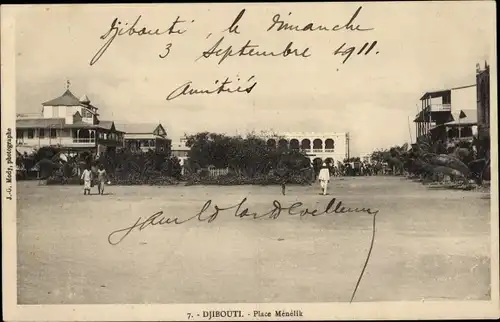 Djibouti le Dimanche
3 Septembre 1911.
Amitiés
J.-G. Mody, photographe
7. - DJIBOUTI. - Place Ménélik